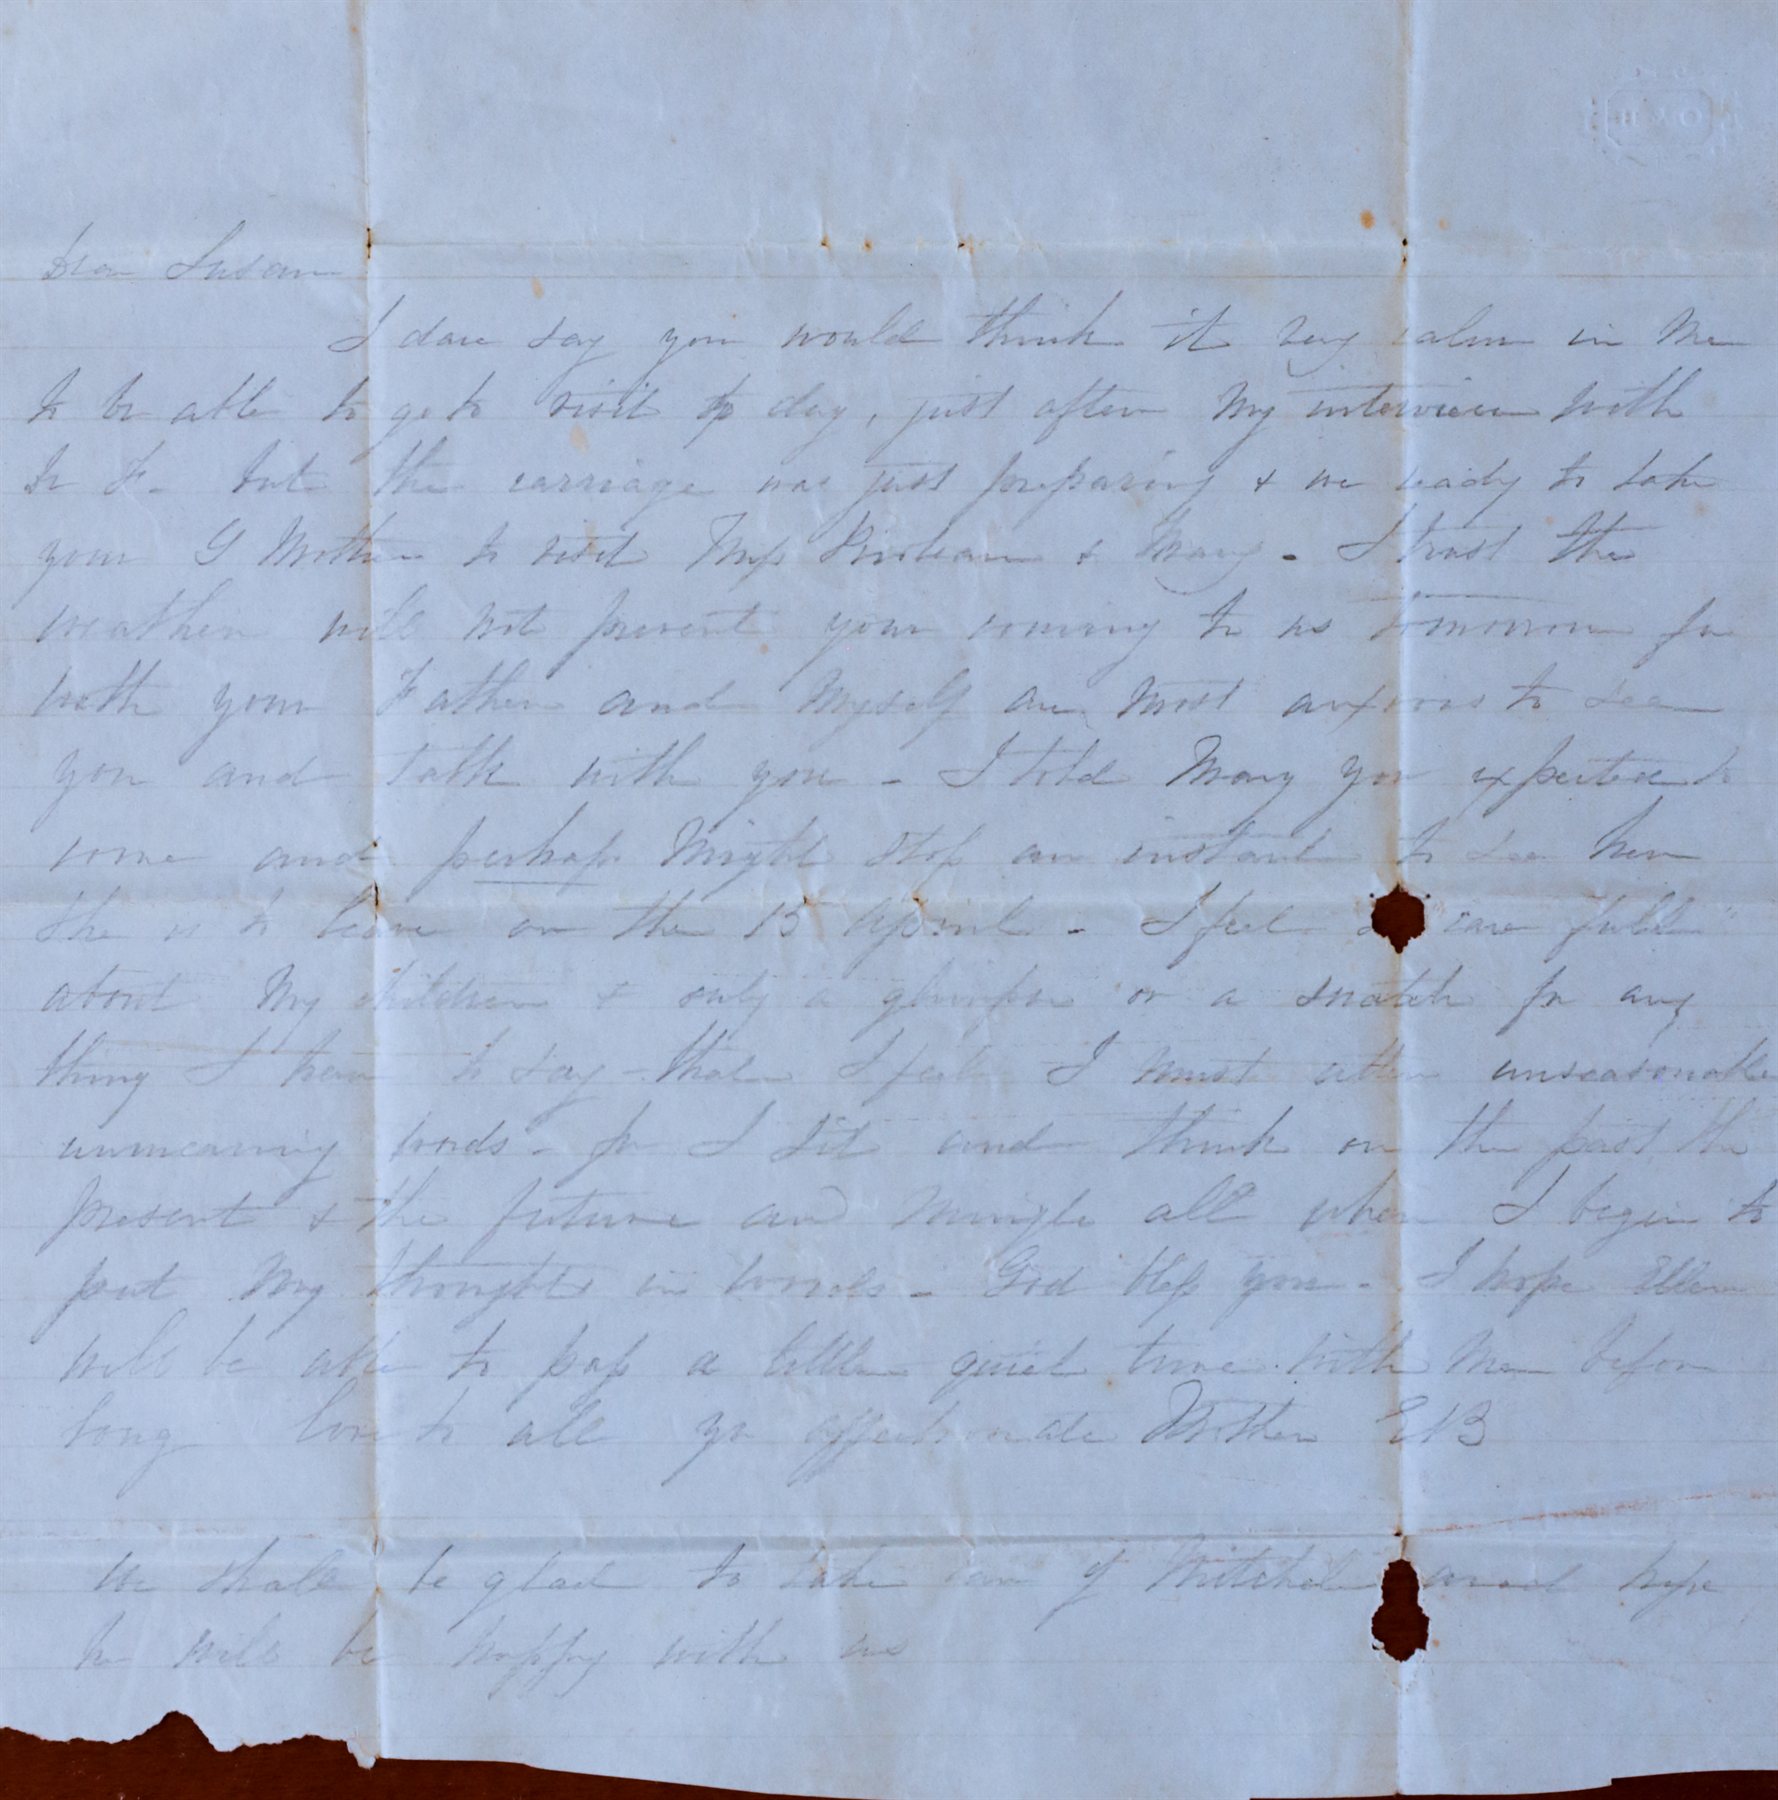 Dear Susan
I dare say you would think it very calm in me
to be able to go to visit to day, just after my interview with
Dr F- but the carriage was just preparing & we ready to take
your G Mother to visit Miss & Mary - I trust the
weather will not prevent your coming to us tomorrow for
both your Father and myself are most anxious to see
you and talk with you - I told Mary you expected to
come and perhaps might stop an instant to see her
She is to leave on the 15 April - I feel care full
about my children & only a glimpse or a snatch for any
thing I have to say - that I feel I must utter unseasonable
unmeaning words - for I sit and think on the past the
present & the future and mingle all when I begin to
put my thoughts in words - God bless you - I hope Ellen
will be able to pass a little quiet time with me before
long love to all yr affectionate Mother
We shall be glad to take care of Mitchel and hope
he will be happy with us